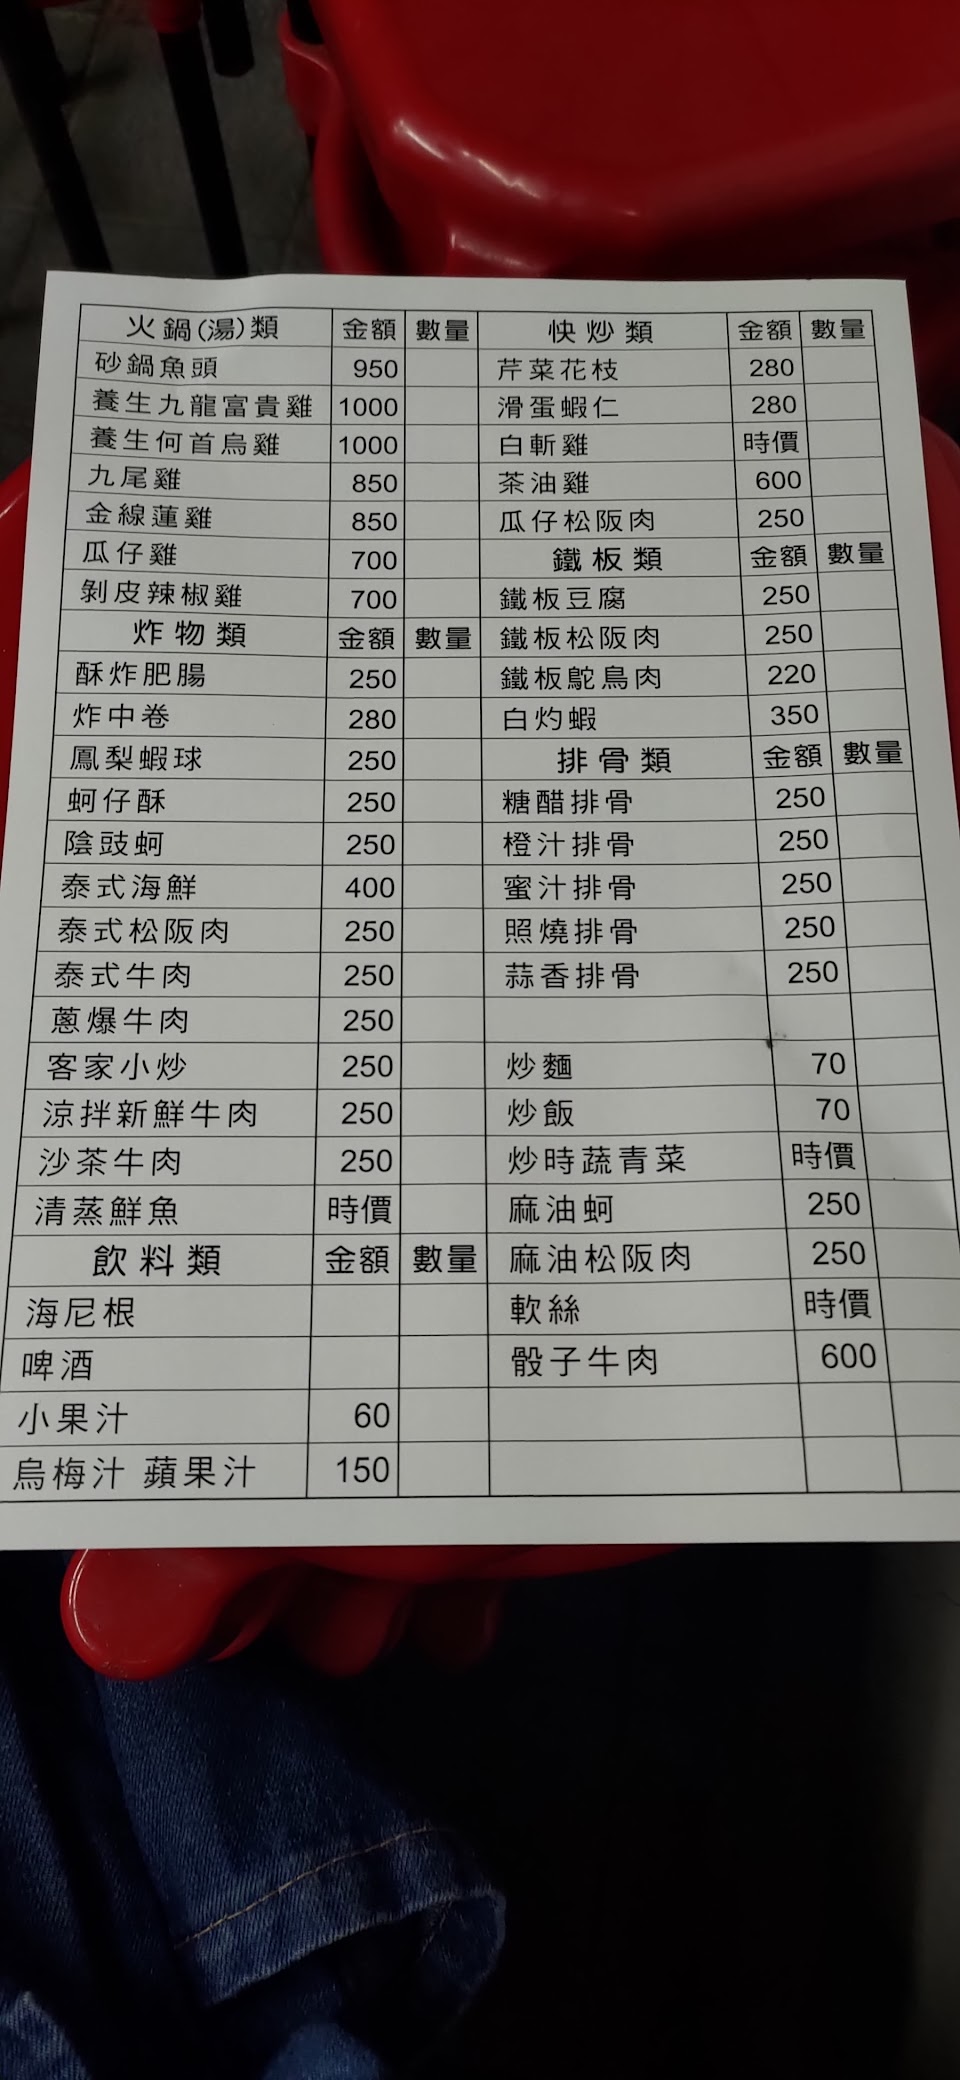 火鍋(湯)類 金額 數量
砂鍋魚頭 950
養生九龍富貴雞 1000
養生何首烏雞 1000
九尾雞 850
金線蓮雞 850
瓜仔雞 700
剝皮辣椒雞 700
炸物類 金額 數量
酥炸肥腸 250
炸中卷 280
鳳梨蝦球 250
蚵仔酥 250
陰豉蚵 250
泰式海鮮 400
泰式松阪肉 250
泰式牛肉 250
蔥爆牛肉 250
客家小炒 250
涼拌新鮮牛肉 250
沙茶牛肉 250
清蒸鮮魚 時價
飲料類 金額 數量
海尼根
啤酒
小果汁 60
烏梅汁 蘋果汁 150
快炒類 金額 數量
芹菜花枝 280
滑蛋蝦仁 280
白斬雞 時價
茶油雞 600
瓜仔松阪肉 250
鐵板類 金額 數量
鐵板豆腐 250
鐵板松阪肉 250
鐵板鴕鳥肉 220
白灼蝦 350
排骨類 金額 數量
糖醋排骨 250
橙汁排骨 250
蜜汁排骨 250
照燒排骨 250
蒜香排骨 250
炒麵 70
炒飯 70
炒時蔬青菜 時價
麻油蚵 250
麻油松阪肉 250
軟絲 時價
骰子牛肉 600